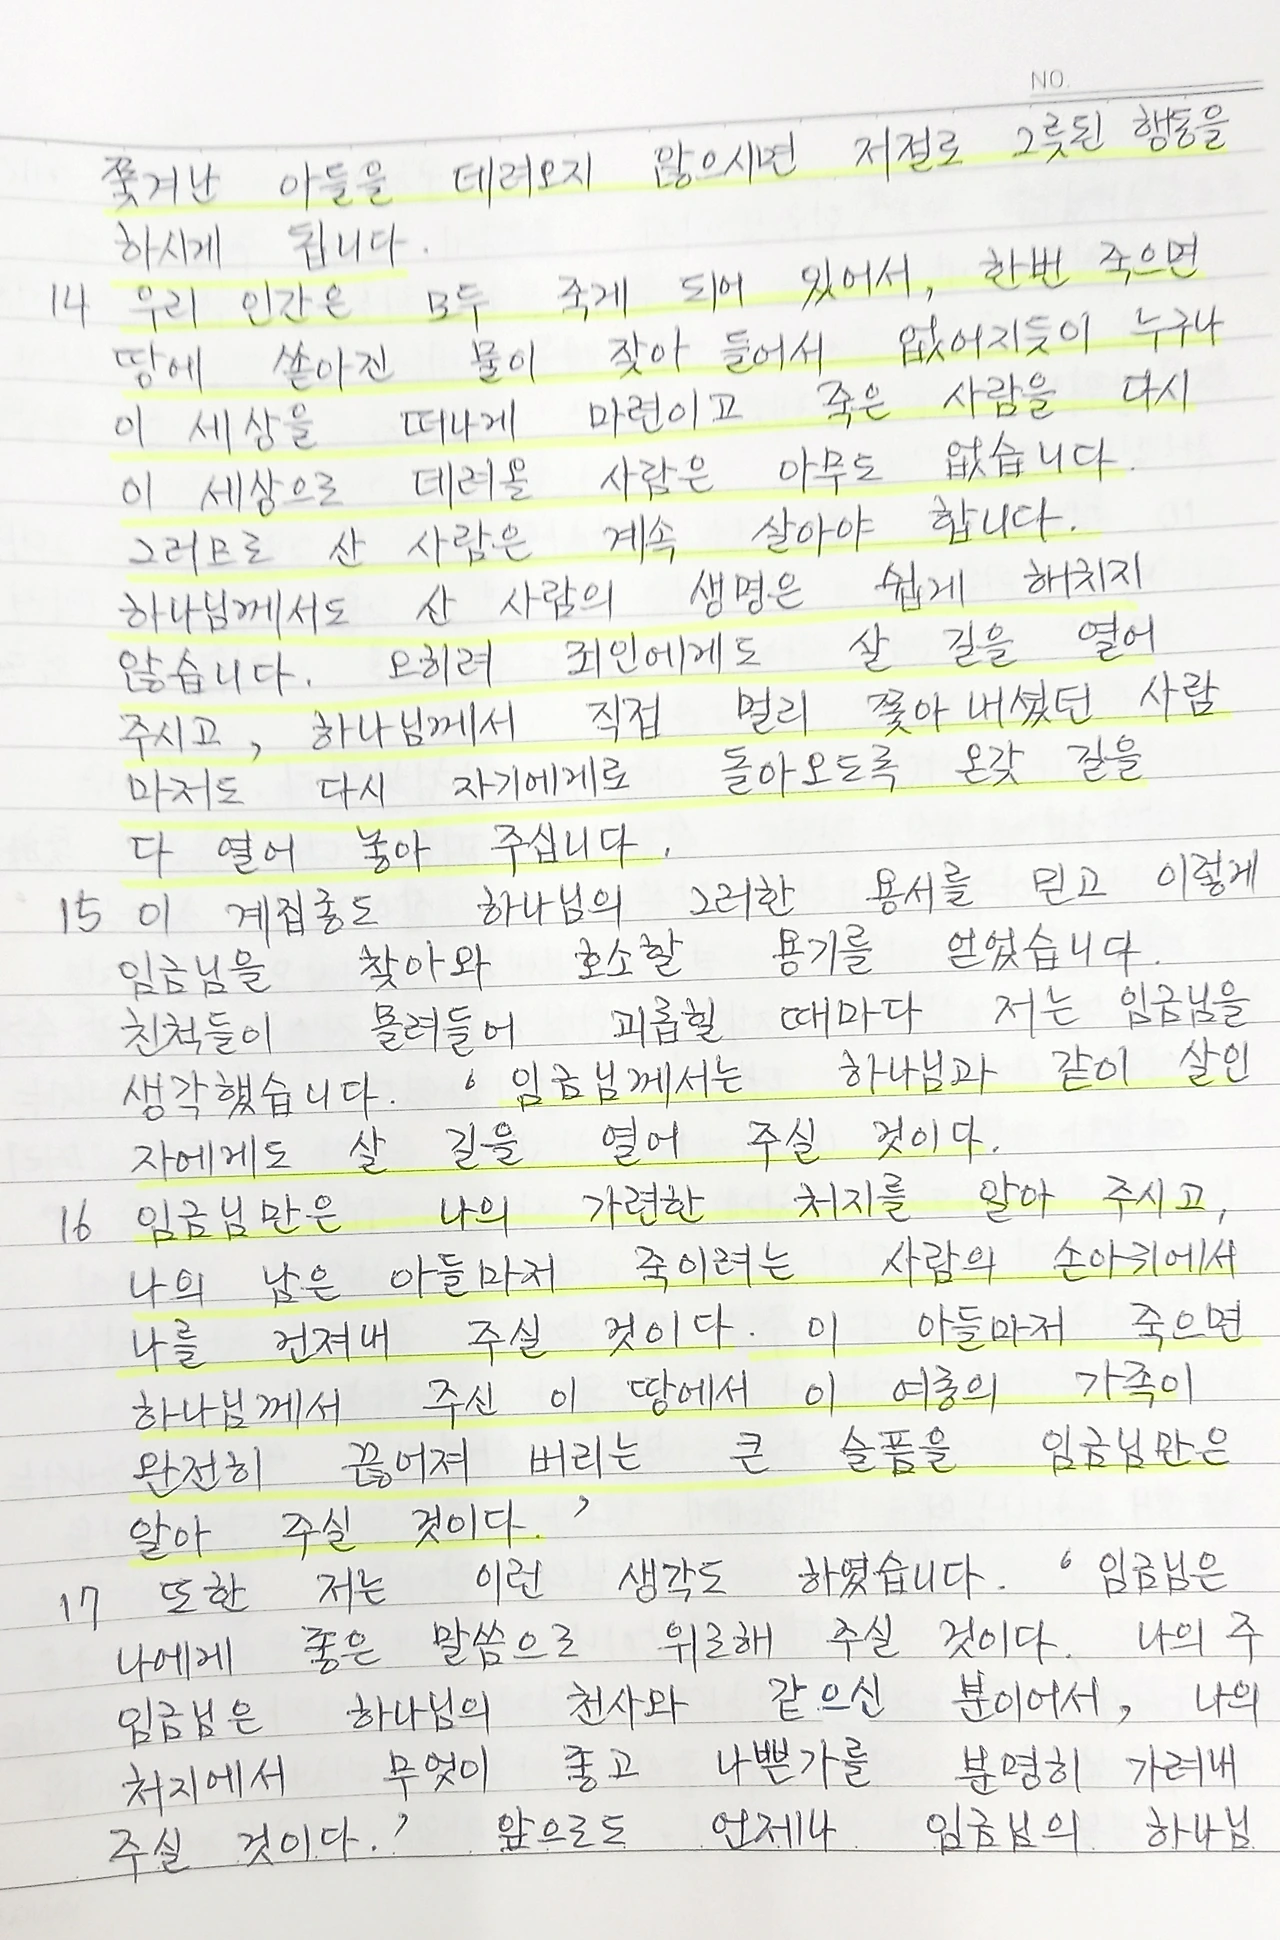 NO.
쫓겨난 아들을 데려오지 않으시면 저절로 그릇된 행동을
하시게 됩니다.
14 우리 인간은 모두 죽게 되어 있어서, 한번 죽으면
땅에 쏟아진 물이 잦아 들어서 없어지듯이 누구나
이 세상을 떠나게 마련이고 죽은 사람을 다시
이 세상으로 데려올 사람은 아무도 없습니다.
그러므로 산 사람은 계속 살아야 합니다.
하나님께서도 산 사람의 생명은 쉽게 해치지
않습니다. 오히려 죄인에게도 살 길을 열어
주시고, 하나님께서 직접 멀리 쫓아 내셨던 사람
마저도 다시 자기에게로 돌아오도록 온갖 길을
다 열어 놓아 주십니다.
15 이 계집종도 하나님의 그러한 용서를 믿고 이렇게
임금님을 찾아와 호소할 용기를 얻었습니다.
친척들이 몰려들어 괴롭힐 때마다 저는 임금님을
생각했습니다. ‘임금님께서는 하나님과 같이 살인
자에게도 살 길을 열어 주실 것이다.
16 임금님만은 나의 가련한 처지를 알아 주시고,
나의 남은 아들마저 죽이려는 사람의 손아귀에서
나를 건져내 주실 것이다. 이 아들마저 죽으면
하나님께서 주신 이 땅에서 이 여종의 가족이
완전히 끊어져 버리는 큰 슬픔을 임금님만은
알아 주실 것이다.’
17 또한 저는 이런 생각도 하였습니다. ‘임금님은
나에게 좋은 말씀으로 위로해 주실 것이다. 나의 주
임금님은 하나님의 천사와 같으신 분이어서, 나의
처지에서 무엇이 좋고 나쁜가를 분명히 가려내
주실 것이다.’ 앞으로도 언제나 임금님의 하나님